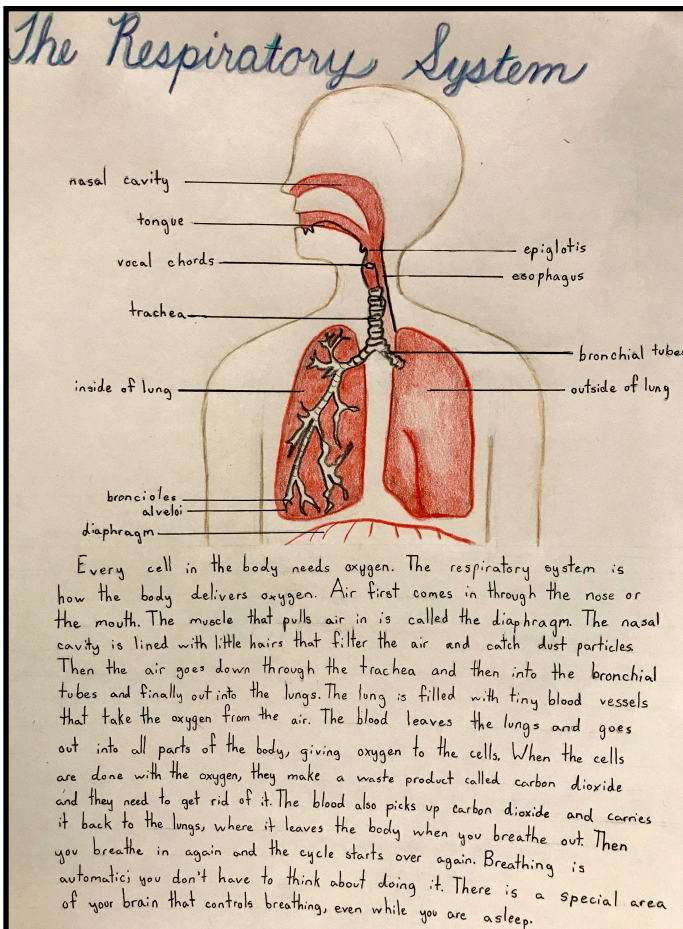 The Respiratory System
nasal cavity
tongue
epiglotis
vocal chords
esophagus
trachea
bronchial tubes
inside of lung
outside of lung
broncioles
alveloi
diaphragm
Every cell in the body needs oxygen. The respiratory system is
how the body delivers oxygen. Air first comes in through the nose or
the mouth. The muscle that pulls air in is called the diaphragm. The nasal
cavity is lined with little hairs that filter the air and catch dust particles.
Then the air goes down through the trachea and then into the bronchial
tubes and finally out into the lungs. The lung is filled with tiny blood vessels
that take the oxygen from the air. The blood leaves the lungs and goes
out into all parts of the body, giving oxygen to the cells. When the cells
are done with the oxygen, they make a waste product called carbon dioxide
and they need to get rid of it. The blood also picks up carbon dioxide and carries
it back to the lungs, where it leaves the body when you breathe out. Then
you breathe in again and the cycle starts over again. Breathing is
automatic; you don't have to think about doing it. There is a special area
of your brain that controls breathing, even while you are asleep.